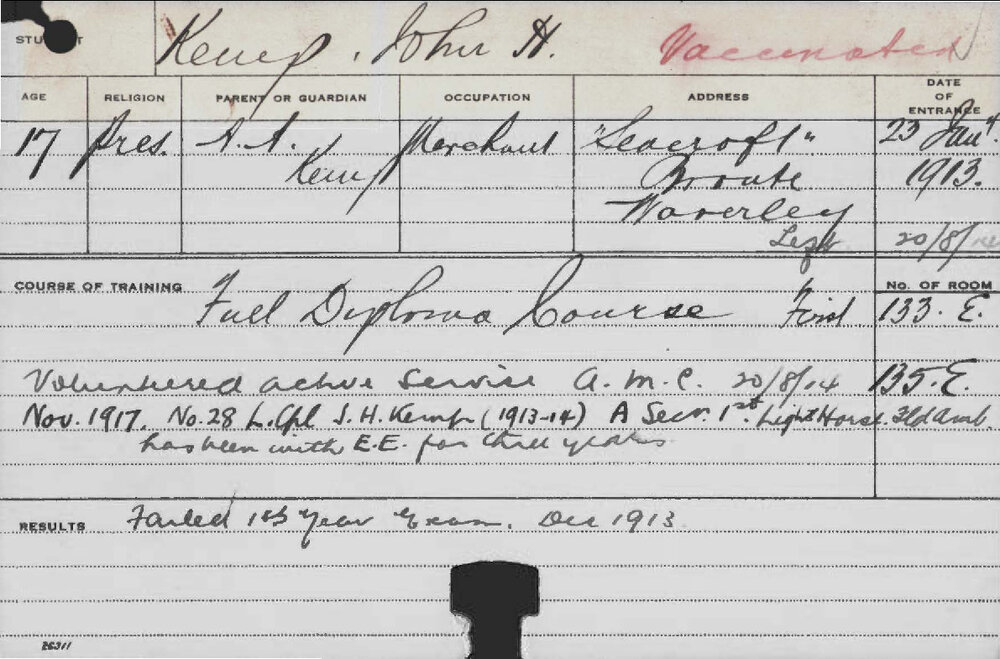 STUDENT Kemp, John H. Vaccinated
AGE RELIGION PARENT OR GUARDIAN OCCUPATION ADDRESS DATE OF ENTRANCE
17 Pres. A. A. Merchant "Seacroft" 23 Jany.
Kemp Bronte 1913.
Waverley
Left 20/8/14
COURSE OF TRAINING Full Diploma Course First No. OF ROOM
133. E.
Volunteered active Service A.M.C. 20/8/14 135. E.
Nov. 1917. No. 28 L. Cpl J. H. Kemp (1913-14) A Secn. 1st. Light Horse. Fld Amb.
has been with E.E. for three years
RESULTS Failed 1st Year Exam. Dec 1913
26311